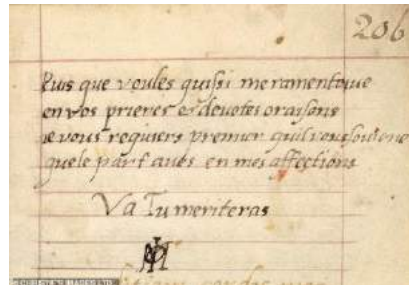 206
Puis que voules quissi me ramentoive
en vos prieres & devotes oraisons
ie vous requiers premier quil vous souviene
quele part aués en mes affections
Va Tu meriteras